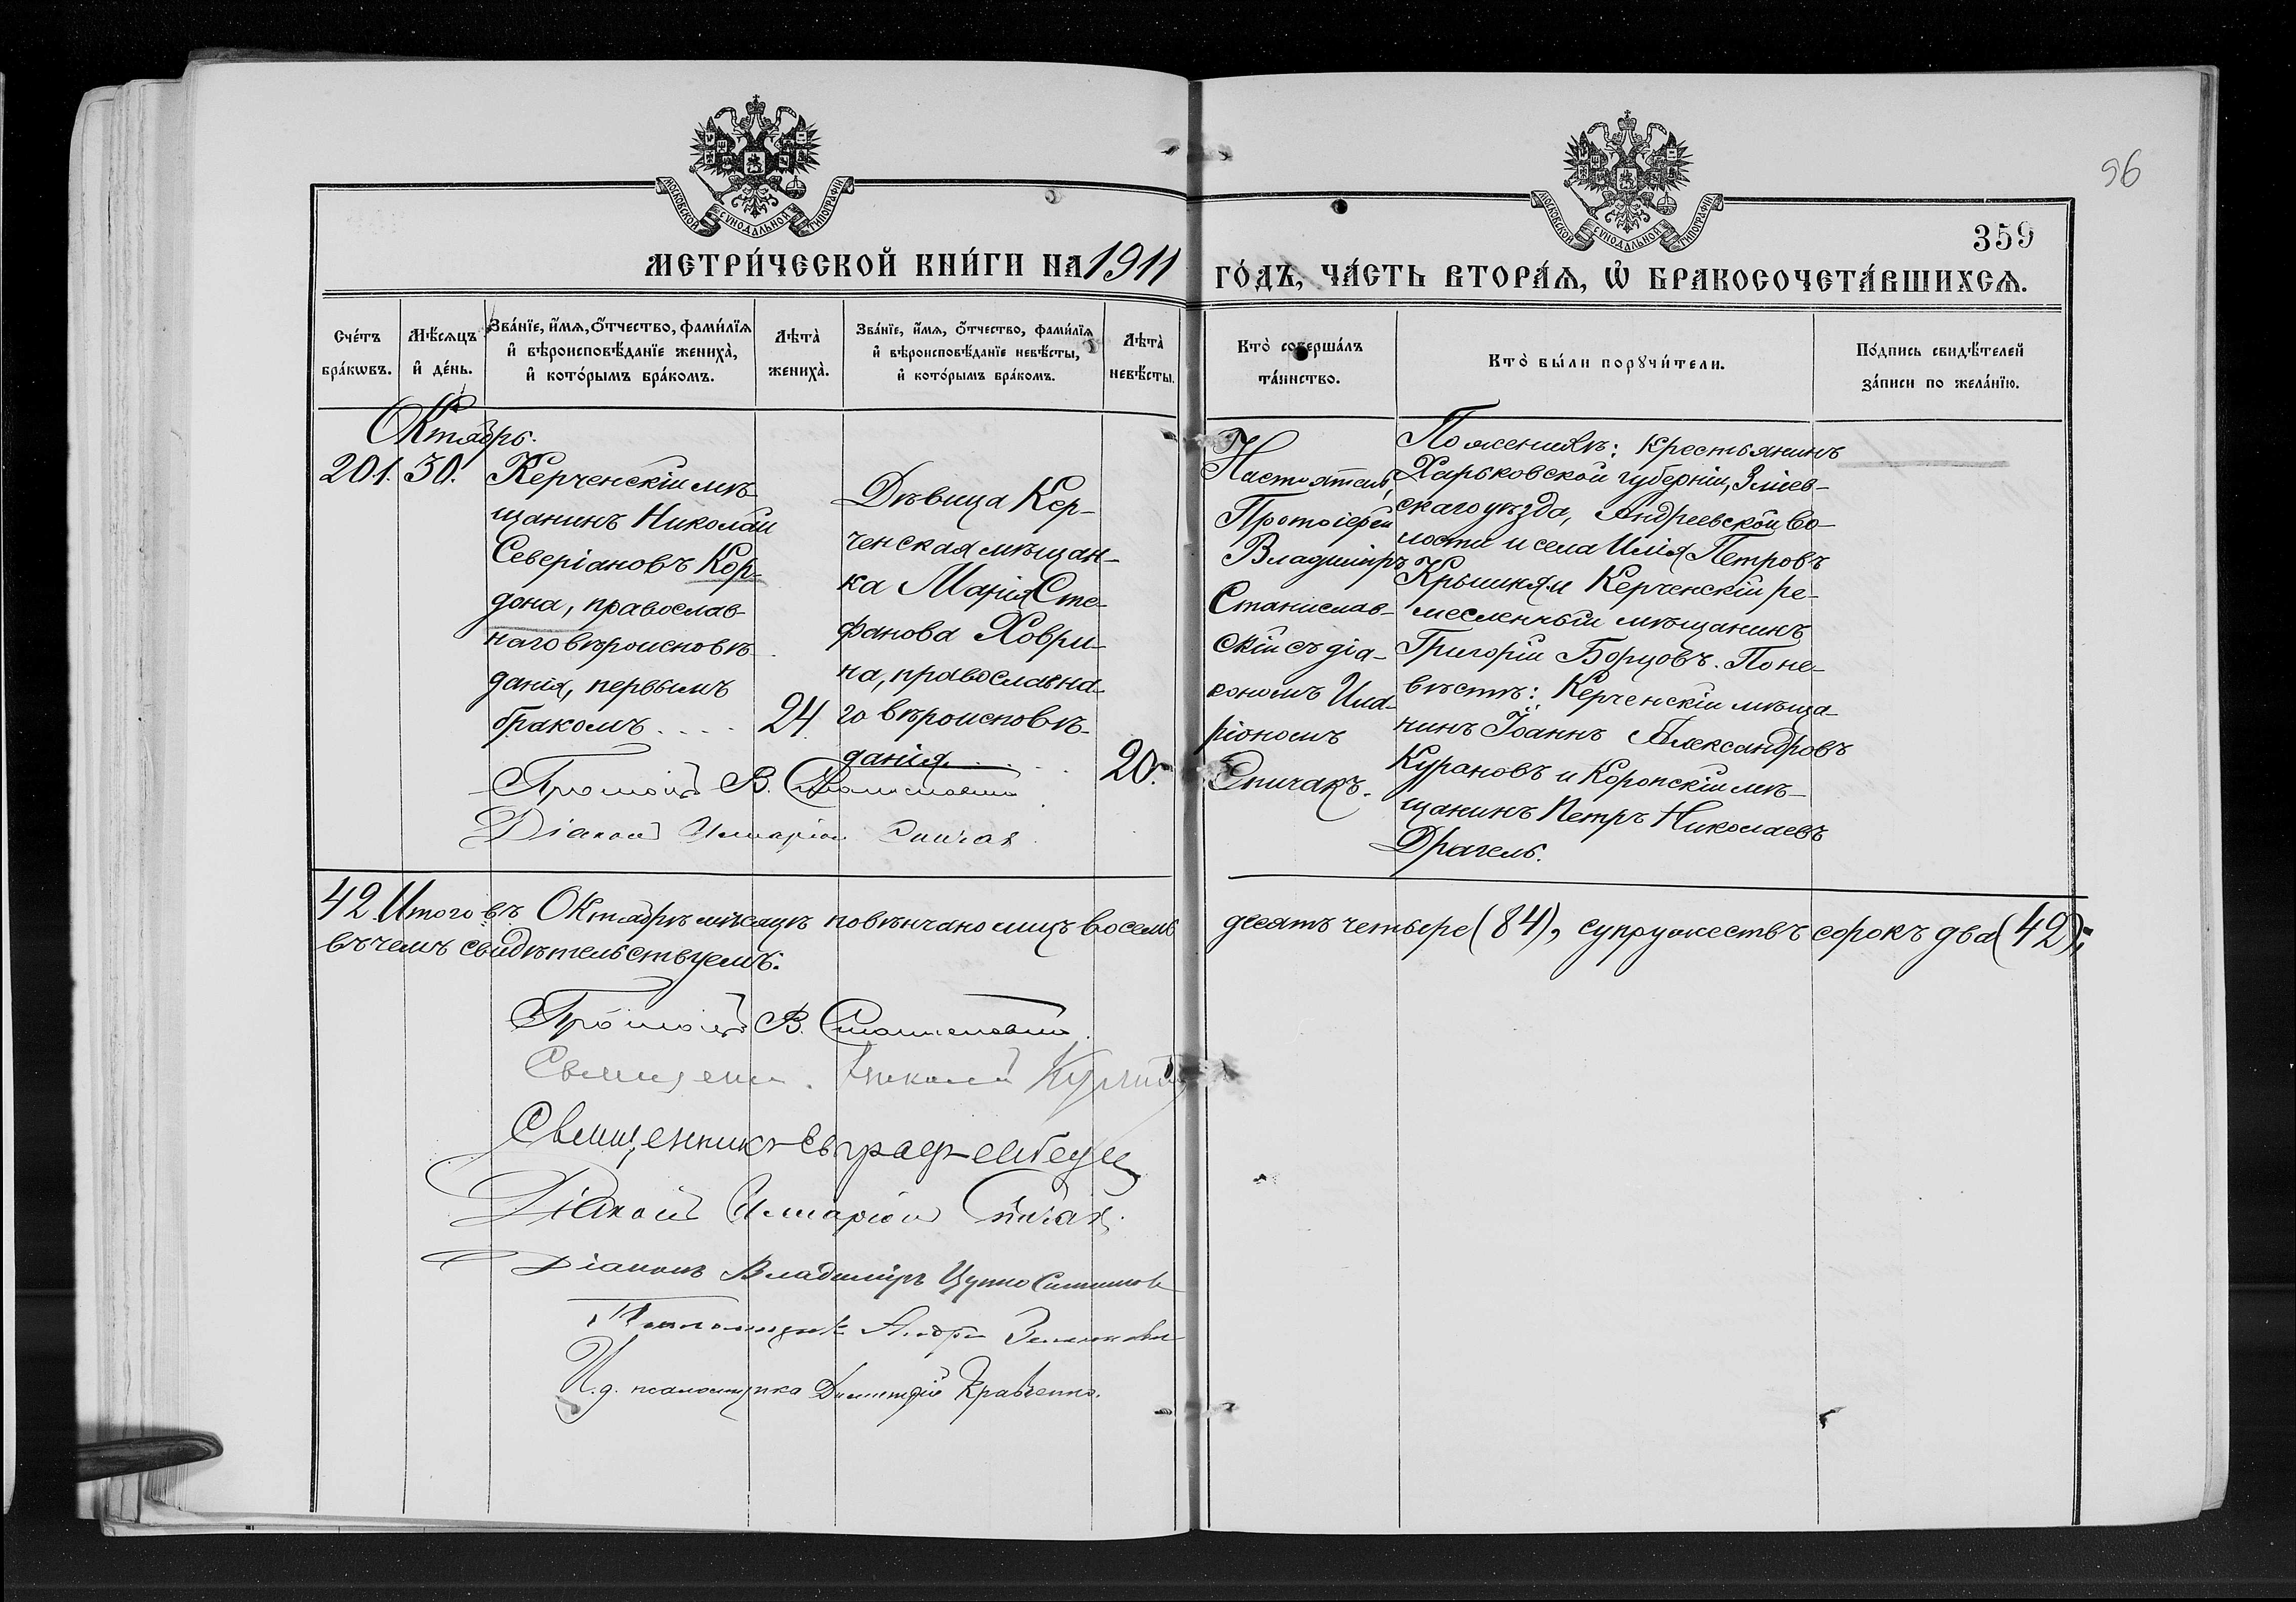 96
359
МОСКОВСКОЙ СѴНОДАЛЬНОЙ ТИПОГРАФІИ
МОСКОВСКОЙ СѴНОДАЛЬНОЙ ТИПОГРАФІИ
МЕТРИ́ЧЕСКОЙ КНИ́ГИ НА 1911 ГО́ДЪ, ЧА́СТЬ ВТОРА́Ѧ, Ѡ҆ БРАКОСОЧЕТА́ВШИХСѦ.
Сче́тъ
бра́кѡвъ.
Мѣ́сяцъ
и҆ де́нь.
Зва́нїе, и҆́мѧ, ѻ҆́тчество, фами́лїѧ
и҆ вѣроисповѣ́данїе жениха̀,
и҆ кото́рымъ бра́комъ.
Лѣта̀
жениха̀.
Зва́нїе, и҆́мѧ, ѻ҆́тчество, фами́лїѧ
и҆ вѣроисповѣ́данїе невѣ́сты,
и҆ кото́рымъ бра́комъ.
Лѣта̀
невѣ́сты.
Кто̀ соверша́лъ
та́инство.
Кто̀ бы́ли порꙋчи́тели.
По́дпись свидѣ́телей
за́писи по жела́нїю.
Октябрь.
201. 30.
Керченскій мѣ-
щанинъ Николай
Северіановъ Кор-
дона, православ-
наго вѣроисповѣ-
данія, первымъ
бракомъ . . . .
24.
Дѣвица Кер-
ченская мѣщан-
ка Марія Сте-
фанова Ховри-
на, православна-
го вѣроисповѣ-
данія . . .
20.
Настоятель,
Протоіерей
Владиміръ
Станислав-
скій съ діа-
кономъ Ила-
ріономъ
Спичакъ.
По женихѣ: крестьянинъ
Харьковской губерніи, Зміев-
скаго уѣзда, Андреевской во-
лости и села Илія Петровъ
Крышкя и Керченскій ре-
месленный мѣщанинъ
Григорій Борцовъ. По не-
вѣстѣ: Керченскій мѣща-
нинъ Іоаннъ Александровъ
Курановъ и Коропскій мѣ-
щанинъ Петръ Николаевъ
Драгель.
Протоіер В. Станиславскій
Діакон Иларіон Спичак
42 Итого въ Октябрѣ мѣсяцѣ повѣнчано лицъ восемь
десятъ четыре (84), супружествъ сорокъ два (42);
въ чемъ свидѣтельствуемъ:
Протоіер В. Станиславскій
Священ. Николай
Священникъ Евграф
Діакон Иларіон Спичак.
Діаконъ Владиміръ
Псаломщикъ Андрей
И. д. псаломщика Димитрій Кравченко.